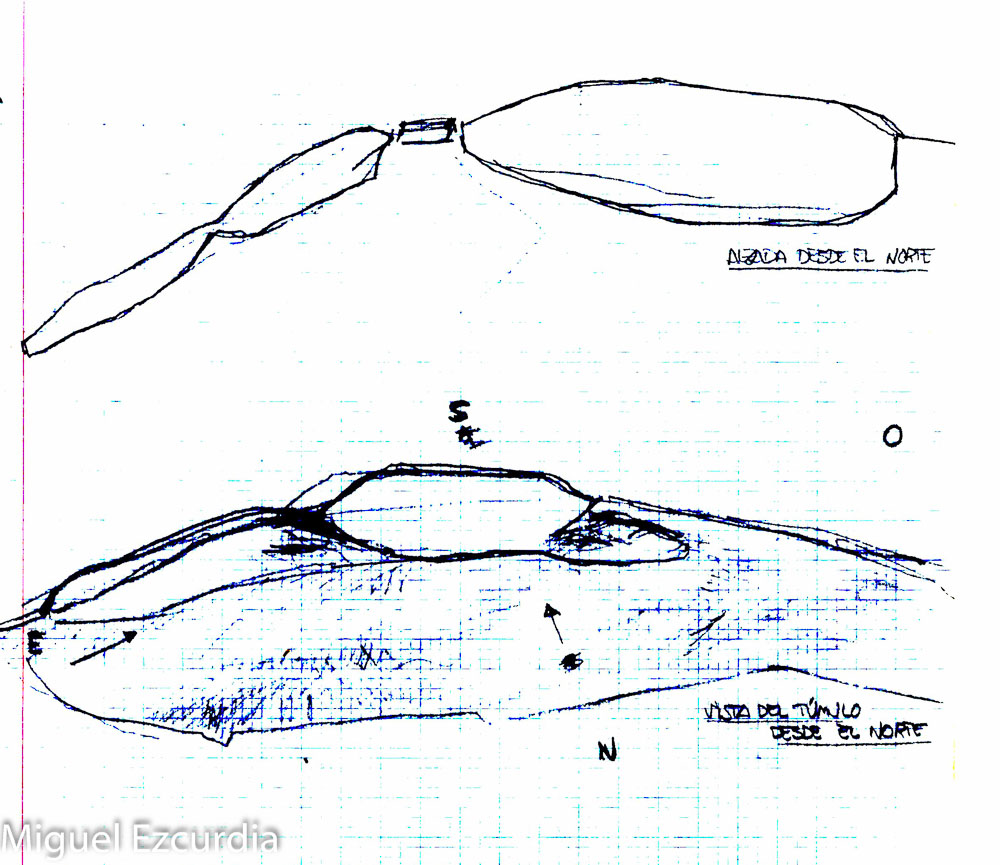 ALZADA DESDE EL NORTE
S
O
E
VISTA DEL TÚMULO
DESDE EL NORTE
N
Miguel Ezcurdia